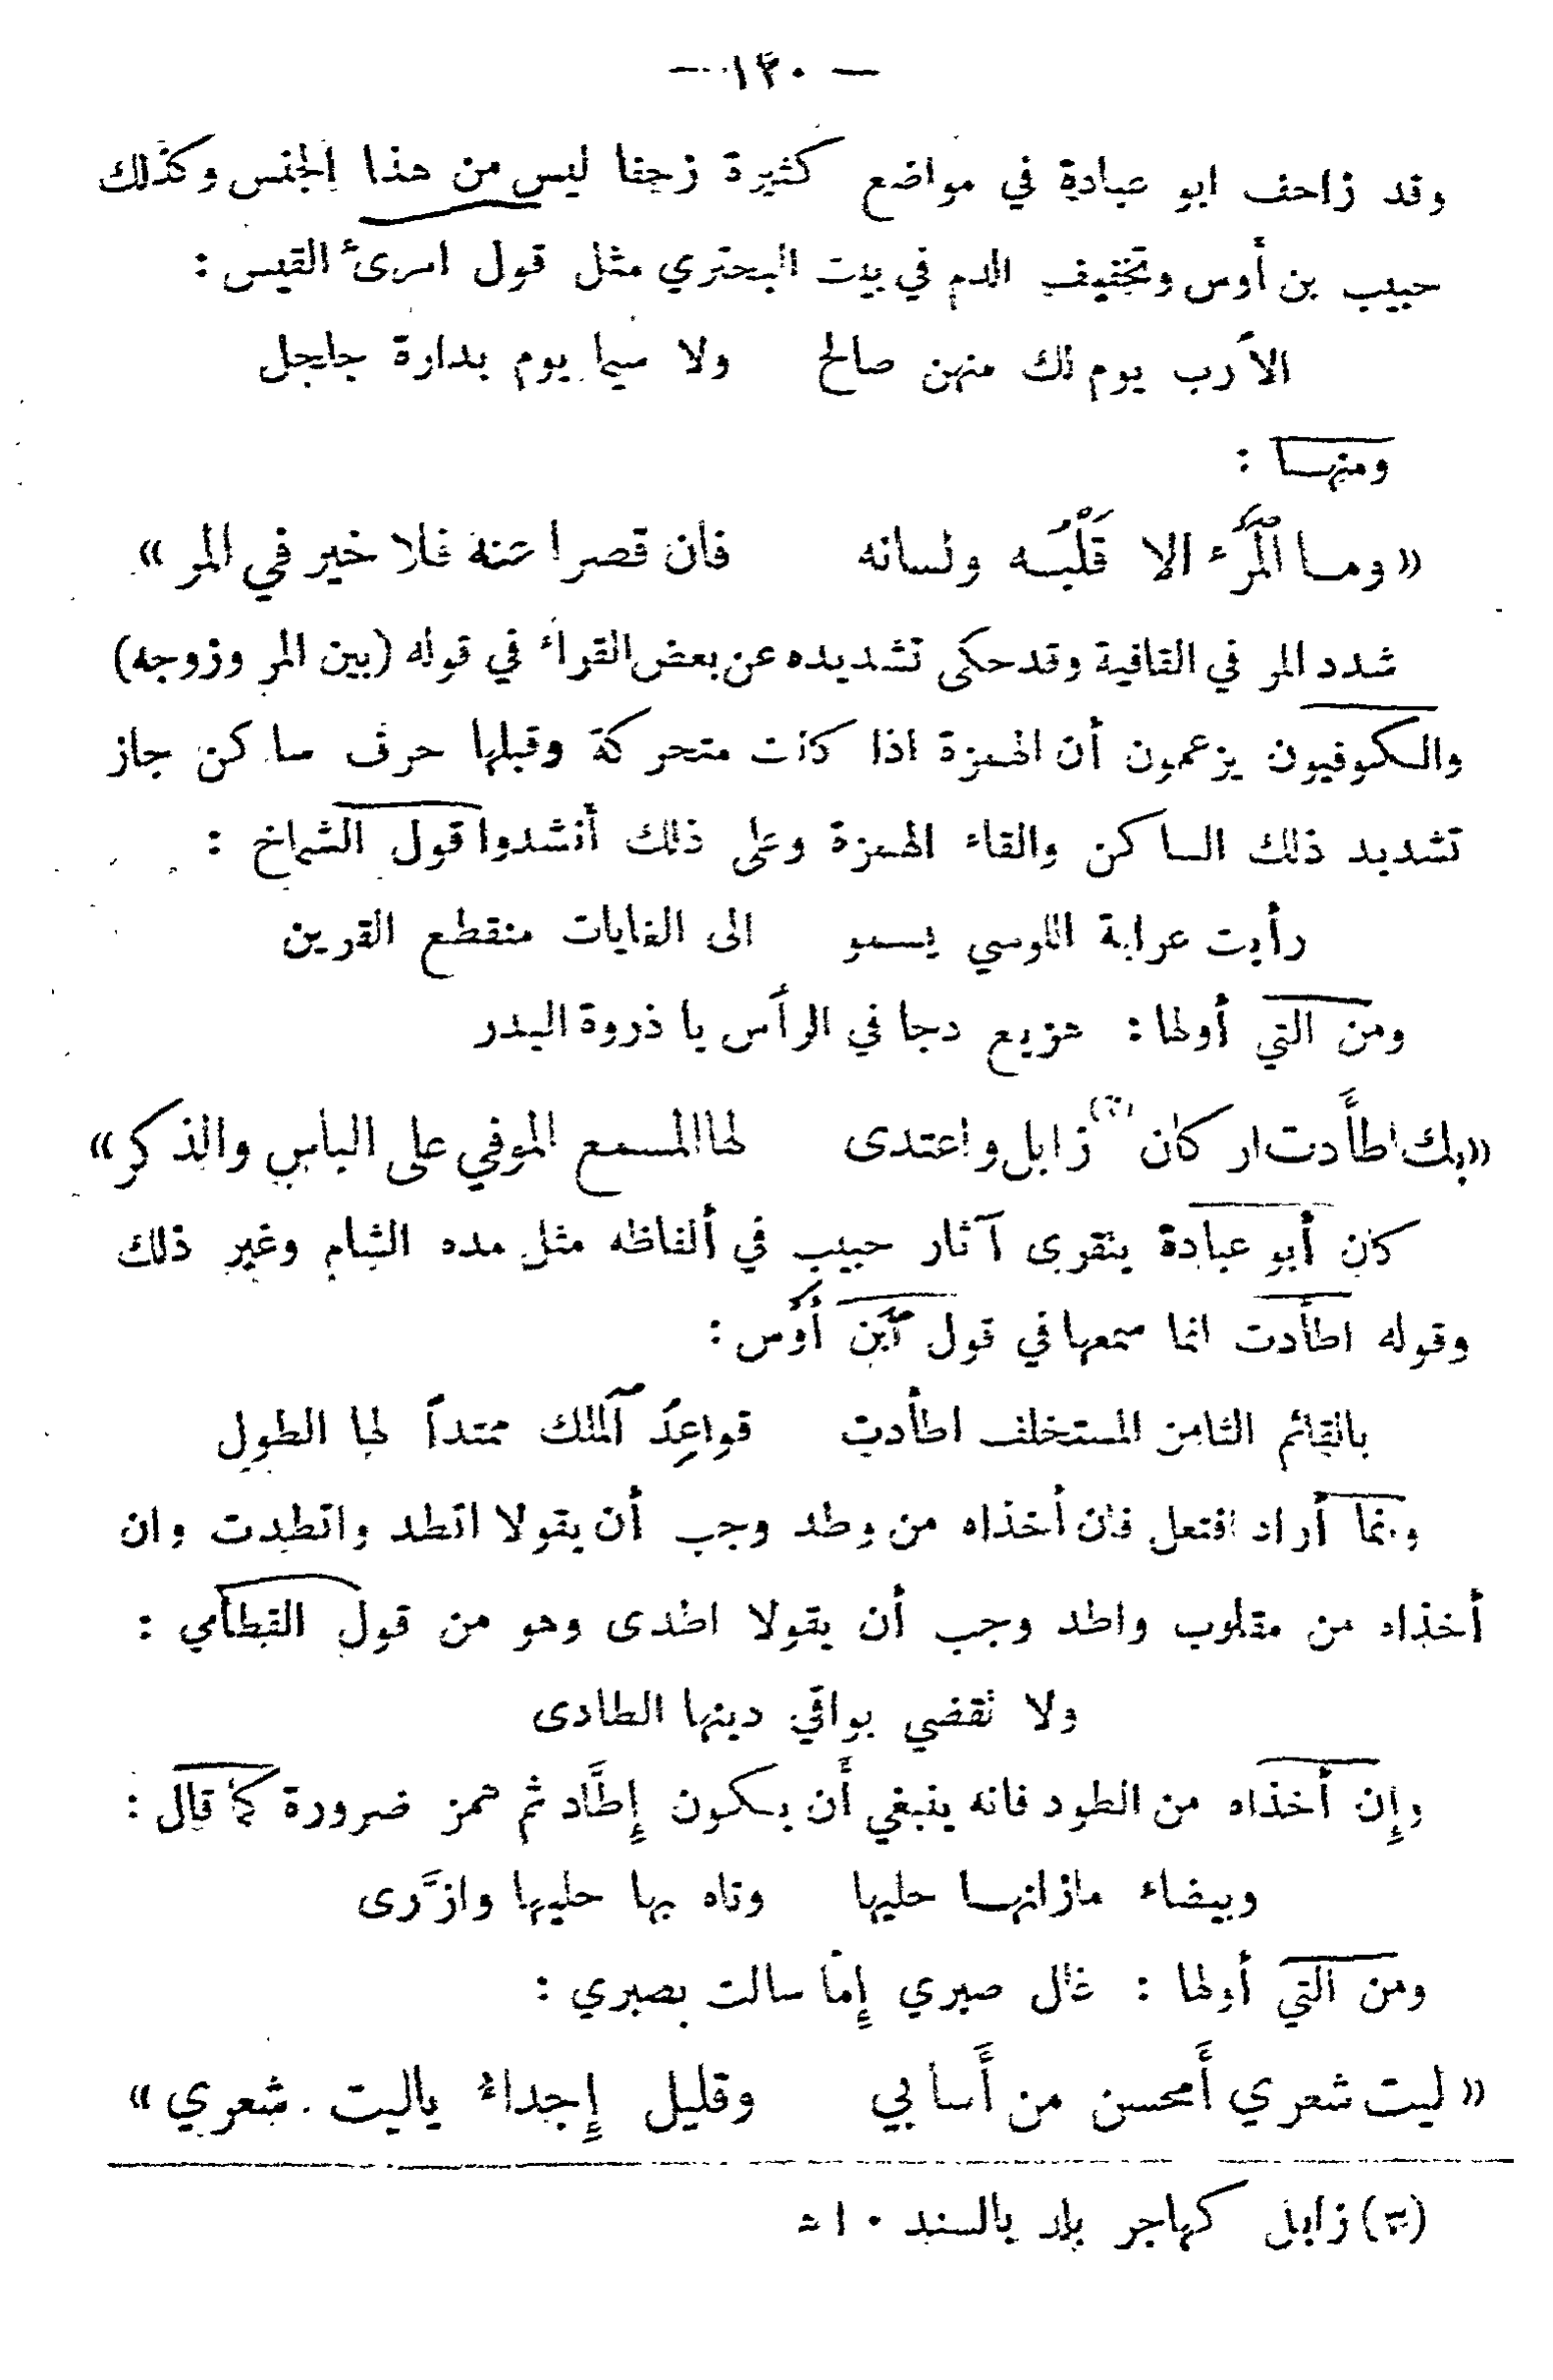 — ١٢٠ —
وقد زاحف ابو عبادة في مواضع كثيرة زحفا ليس من هذا الجنس وكذلك
حبيب بن أوس وتخفيف الدم في بيت البحتري مثل قول امرئ القيس :
الا رب يوم لك منهن صالح ولا سيما يوم بدارة جلجل
ومنها :
« وما المرء الا قلبه ولسانه فان قصرا عنه فلا خير في المر »
شدد المر في القافية وقد حكى تشديده عن بعض القراء في قوله (بين المر وزوجه)
والكوفيون يزعمون أن الهمزة اذا كانت متحركة وقبلها حرف ساكن جاز
تشديد ذلك الساكن والقاء الهمزة وعلى ذلك أنشدوا قول الشماخ :
رأيت عرابة اللوسي يسمو الى الغايات منقطع القرين
ومن التي أولها : هزيع دجا في الرأس يا ذروة البدر
« بك اطأدت اركان (*) زابل واعتدى لها المسمع الموفي على الباس والذكر »
كان أبو عبادة يتقرى آثار حبيب في ألفاظه مثل مده الشام وغير ذلك
وقوله اطأدت انما سمعها في قول ابن أوس :
بالقائم الثامن المستخلف اطأدت قواعدُ الملك ممتداً لها الطول
وانما أراد افتعل فان أخذاه من وطد وجب أن يقولا اتطد واتطدت وان
أخذاه من مقلوب واطد وجب أن يقولا اطدى وهو من قول القطامي :
ولا تقضي بواقي دينها الطادى
وإن أخذاه من الطود فانه ينبغي أن يكون إِطَّاد ثم همز ضرورة كما قال :
وبيضاء مازانها حليها وتاه بها حليها وازّرى
ومن التي أولها : غال صبري إمّا سالت بصبري :
« ليت شعري أمحسن من أسا بي وقليل إجداءُ ياليت شعري »
(*) زابل كهاجر بلد بالسند ٠ اه